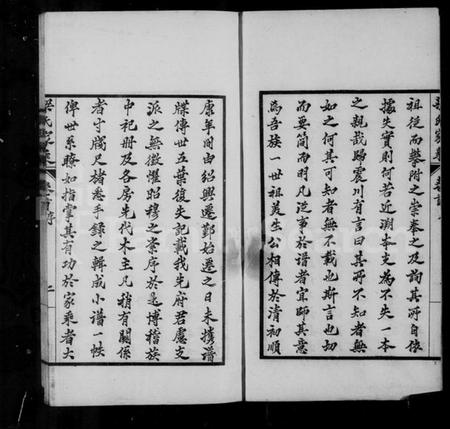 祖從而攀附之崇奉之及詢其所自依
據失實則何若近溯本支為不失一本
之親哉歸震川有言曰其所不知者無
如之何其可知者無不載也斯言也切
而要簡而明凡從事於譜者宜師其意
焉吾族一世祖美生公相傳於清初順
康年間由紹興遷鄞始遷之日未攜譜
牒傳世五葉復失記載我先府君慮支
派之無徵懼昭穆之紊序於是博稽族
中祀冊及各房先代木主凡稍有關係
者寸牋尺楮悉手錄之輯成小譜一帙
俾世系瞭如指掌其有功於家乘者大
吳氏家乘
卷首 序
二